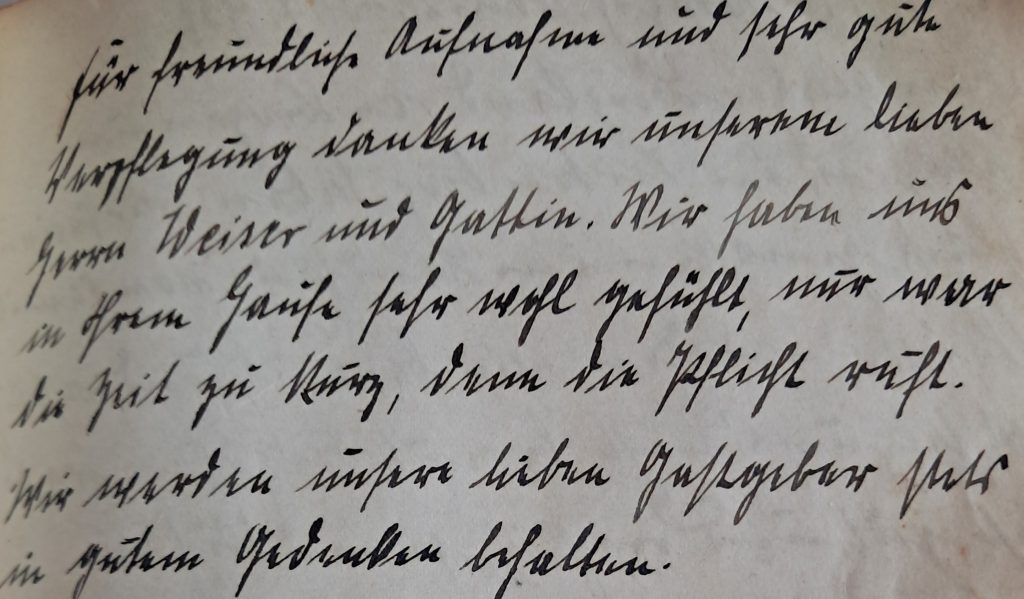 Für freundliche Aufnahme und sehr gute
Verpflegung danken wir unserem lieben
Herrn Weiser und Gattin. Wir haben uns
in Ihrem Hause sehr wohl gefühlt, nur war
die Zeit zu kurz, denn die Pflicht ruft.
Wir werden unsere lieben Gastgeber stets
in gutem Gedenken behalten.